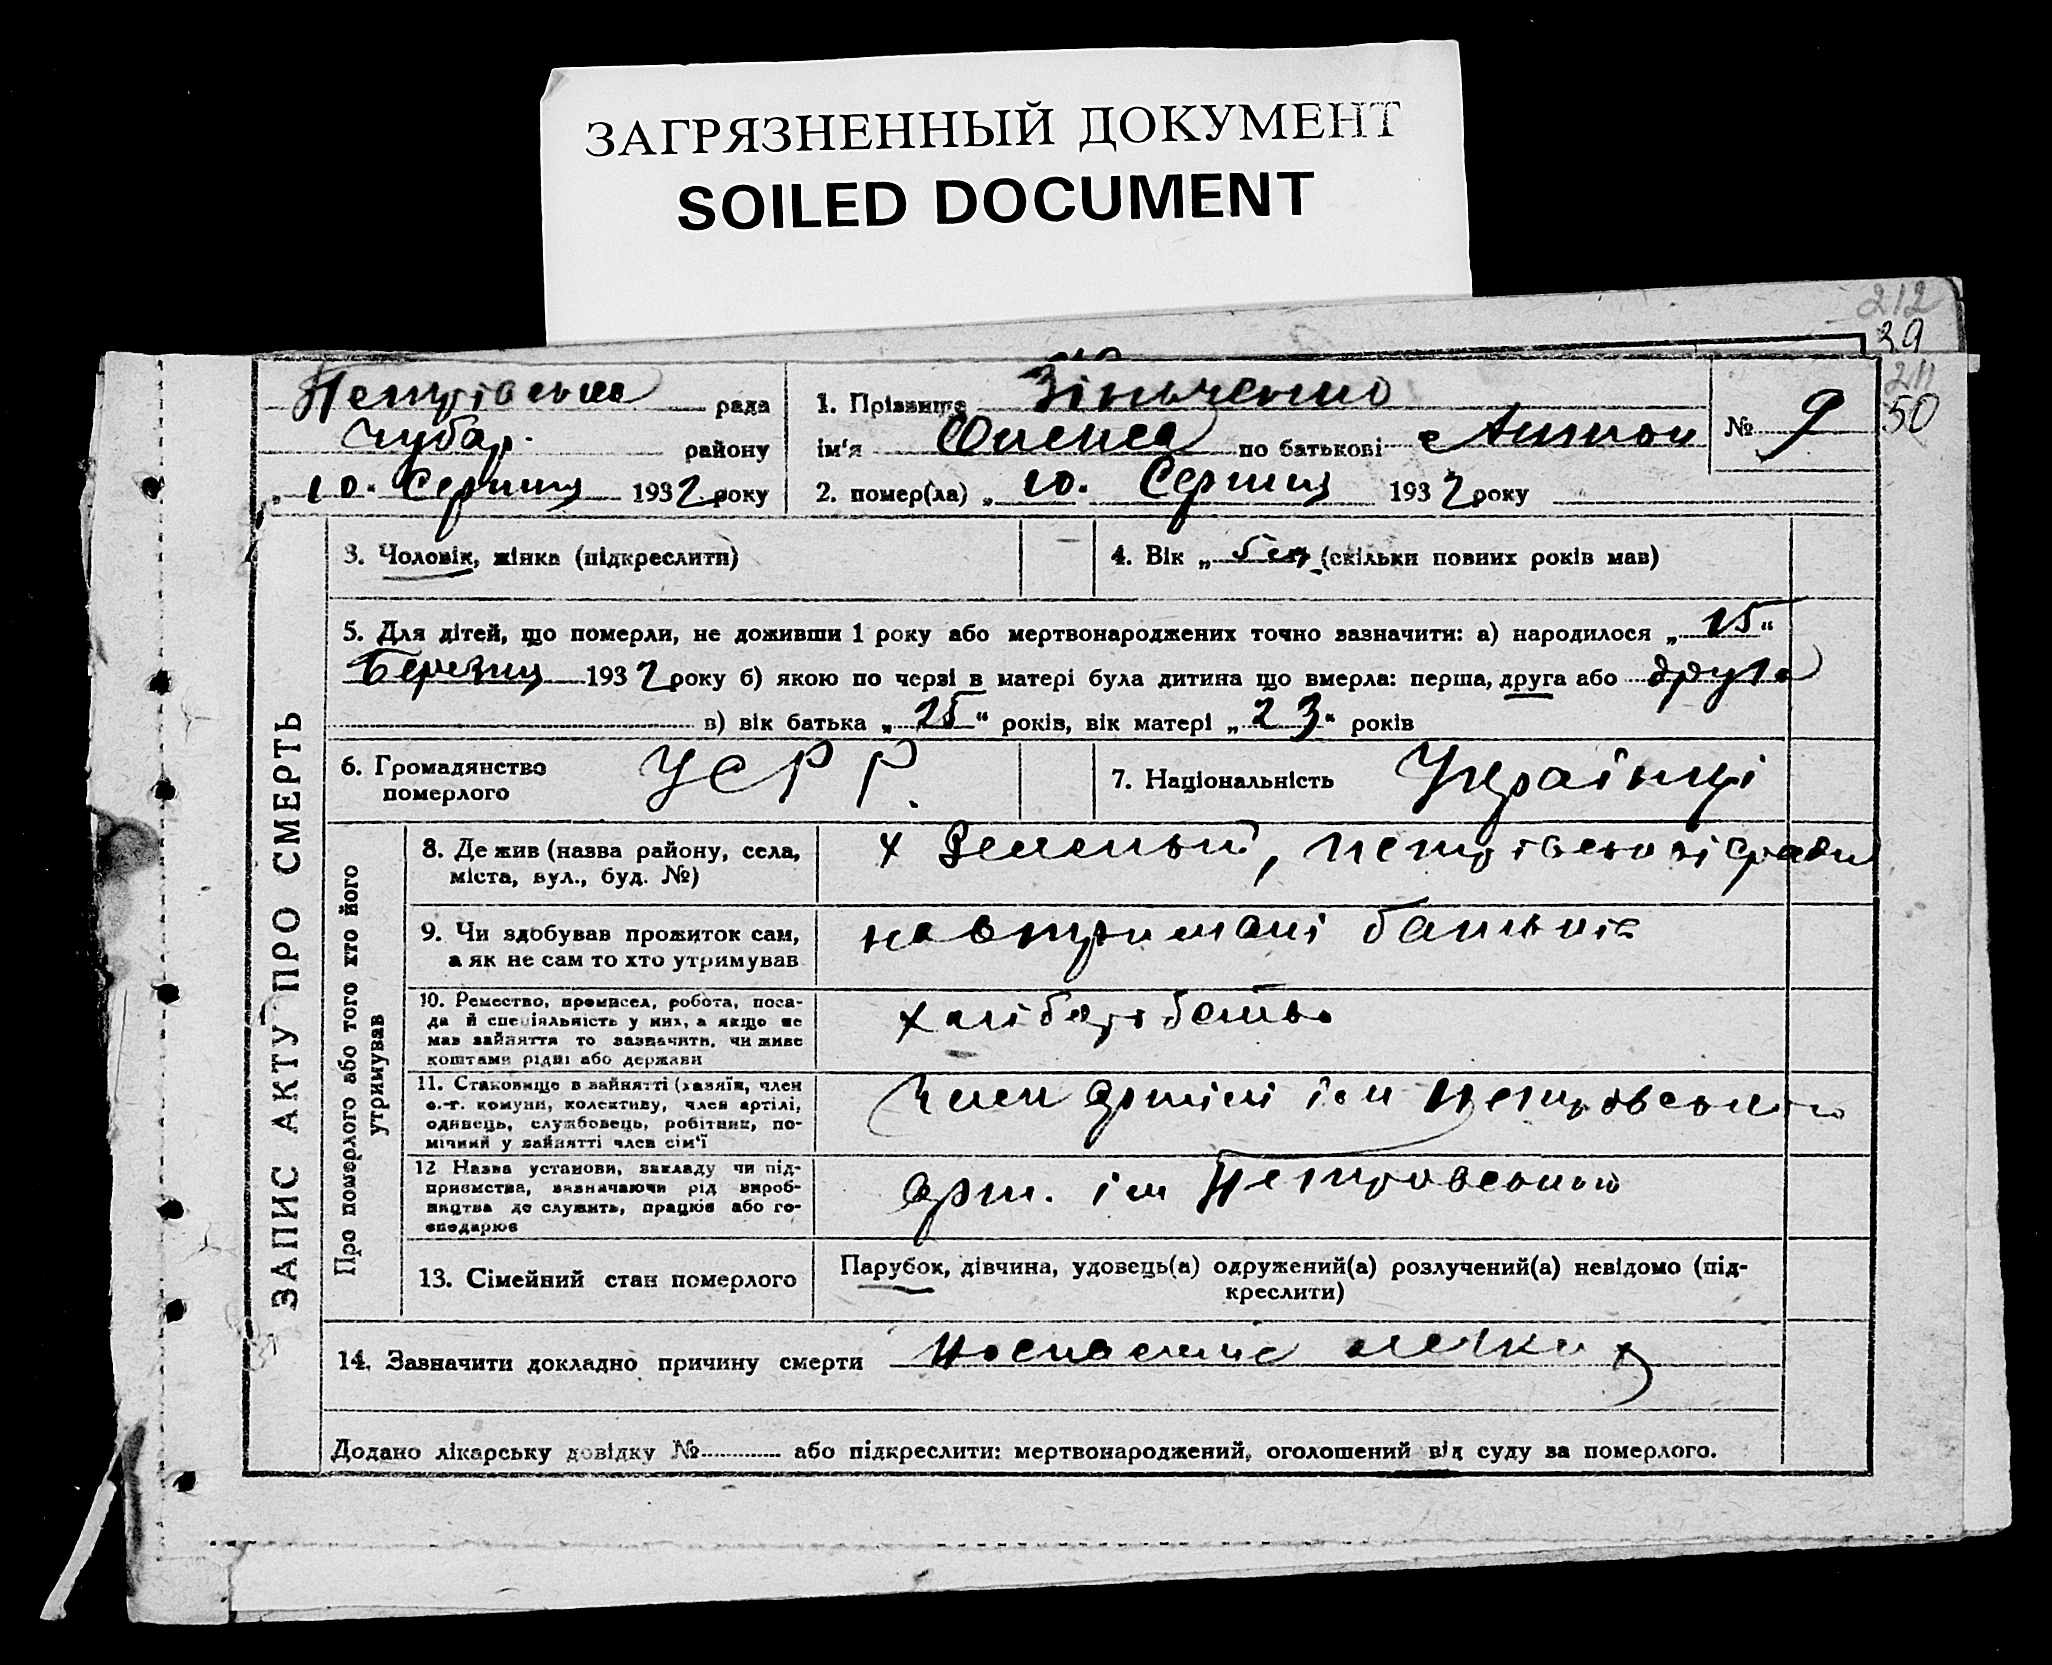 ЗАГРЯЗНЕННЫЙ ДОКУМЕНТ
SOILED DOCUMENT
212
39
211
50
Петрівська рада
Чубар. району
„ 10. Серпня 1932 року
1. Прізвище Зінченко
ім'я Олекса по батькові Антон
2. помер(ла) „ 10. Серпня 1932 року
№ 9
ЗАПИС АКТУ ПРО СМЕРТЬ
3. Чоловік, жінка (підкреслити)
4. Вік „ 5 м (скільки повних років мав)
5. Для дітей, що померли, не доживши 1 року або мертвонароджених точно зазначити: а) народилося „ 15 “
Березня 1932 року б) якою по черзі в матері була дитина що вмерла: перша, друга або друга
в) вік батька „ 25 “ років, вік матері „ 23 “ років
6. Громадянство
померлого
УСРР.
7. Національність Українці
Про померлого або того хто його
утримував
8. Де жив (назва району, села,
міста, вул., буд. №)
х Зелений, петрівської сради
9. Чи здобував прожиток сам,
а як не сам то хто утримував
на втримані батьків
10. Ремество, промисел, робота, поса-
да й спеціяльність у них, а якщо не
мав зайняття то зазначити, чи живе
коштами рідні або держави
хліборобство
11. Становище в зайнятті (хазяїн, член
с.-г. комуни, колективу, член артілі,
одинець, службовець, робітник, по-
мічний у зайнятті член сім'ї
Член артілі ім Петровського
12 Назва установи, закладу чи під-
приємства, зазначаючи рід вироб-
ництва де служить, працює або го-
сподарює
Арт. ім Петровського
13. Сімейний стан померлого
Парубок, дівчина, удовець(а) одружений(а) розлучений(а) невідомо (під-
креслити)
14. Зазначити докладно причину смерти
Додано лікарську довідку № або підкреслити: мертвонароджений, оголошений від суду за померлого.